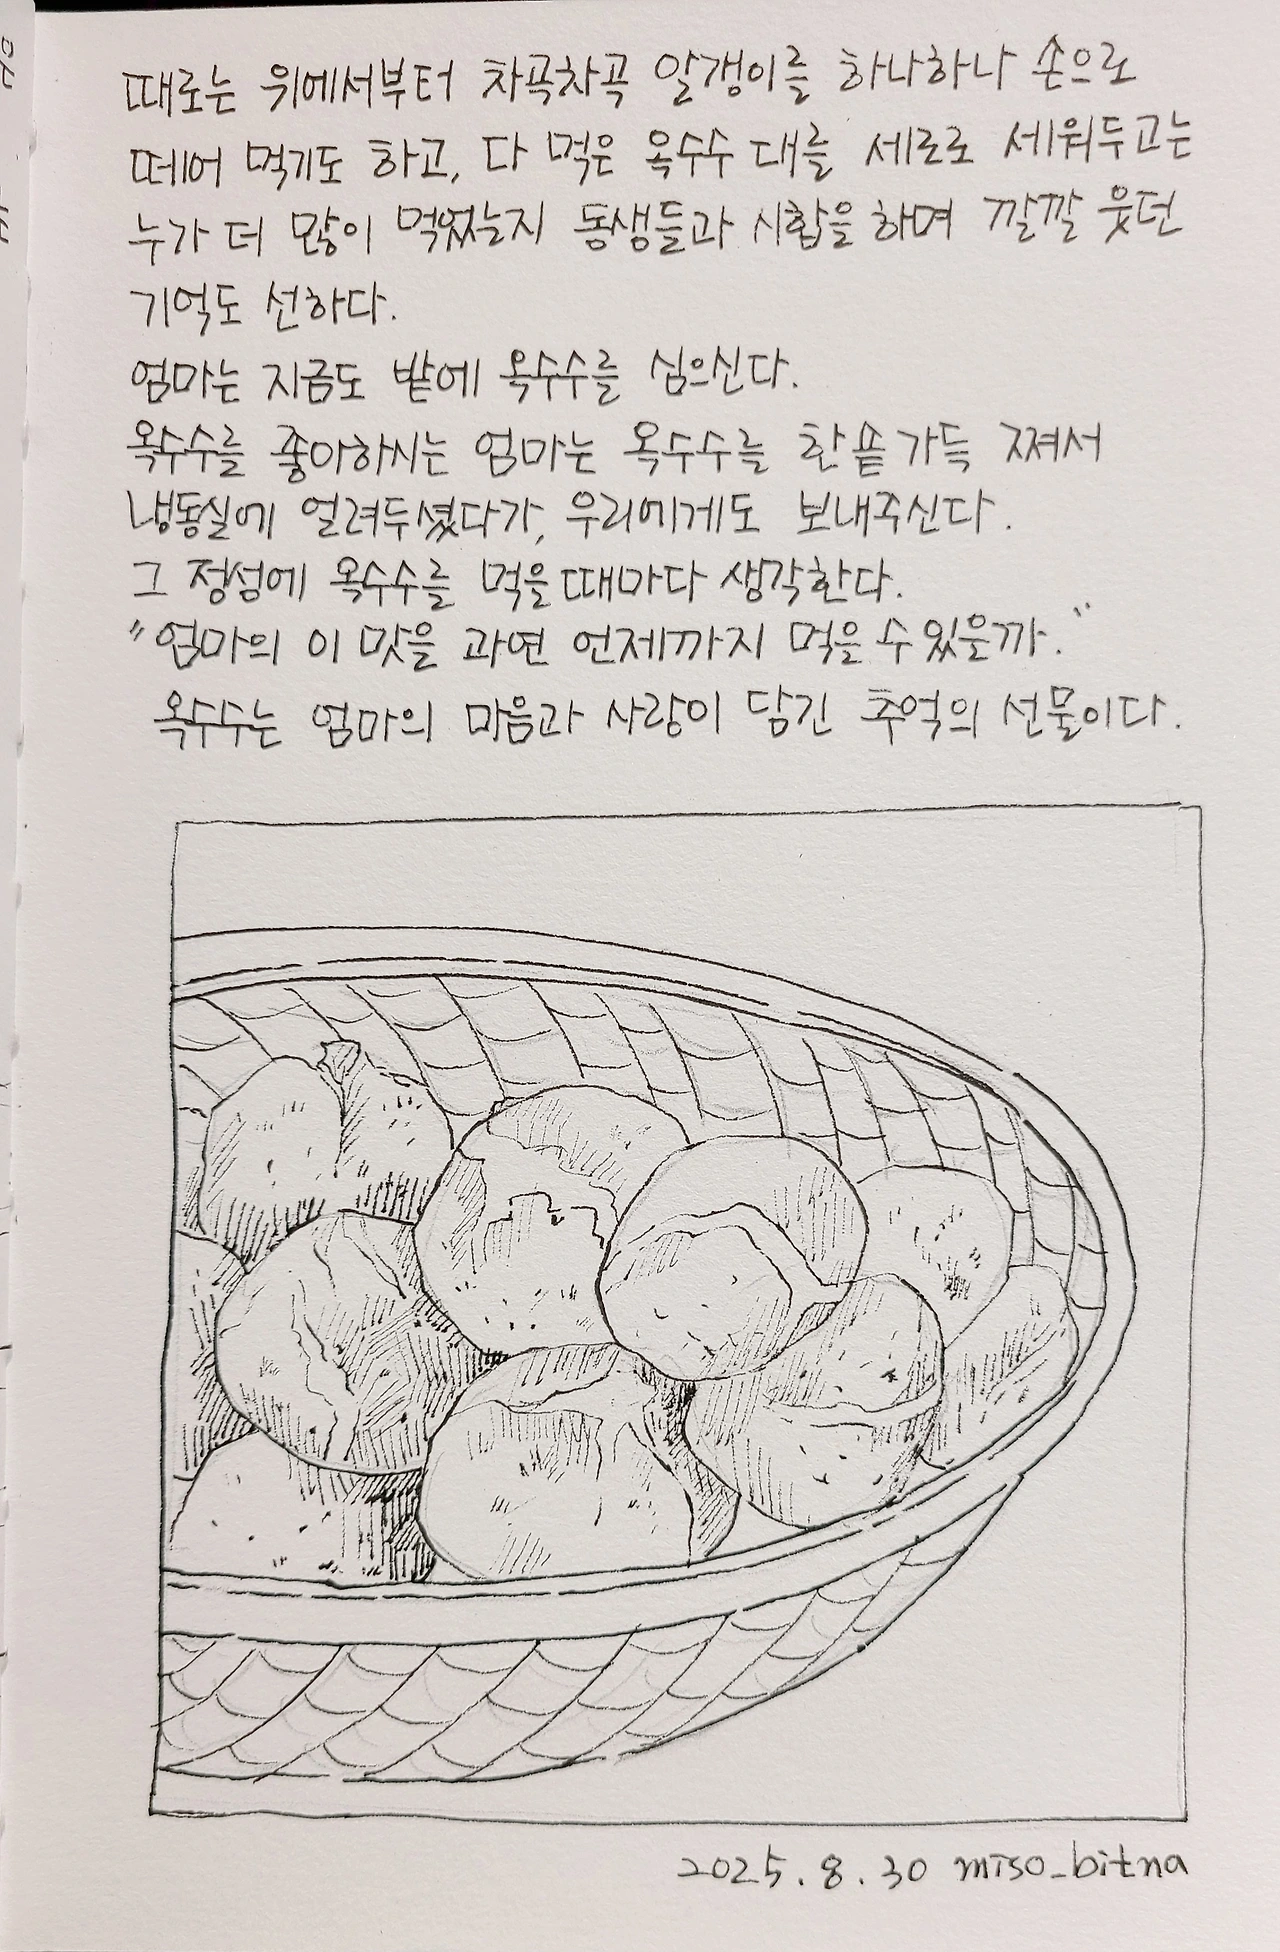 때로는 위에서부터 차곡차곡 알갱이를 하나하나 손으로
떼어 먹기도 하고, 다 먹은 옥수수 대를 세로로 세워두고는
누가 더 많이 먹었는지 동생들과 시합을 하며 깔깔 웃던
기억도 선하다.
엄마는 지금도 밭에 옥수수를 심으신다.
옥수수를 좋아하시는 엄마는 옥수수를 한솥 가득 쪄서
냉동실에 얼려두셨다가, 우리에게도 보내주신다.
그 정성에 옥수수를 먹을때마다 생각한다.
"엄마의 이 맛을 과연 언제까지 먹을 수 있을까."
옥수수는 엄마의 마음과 사랑이 담긴 추억의 선물이다.
2025.8.30 miso_bitna